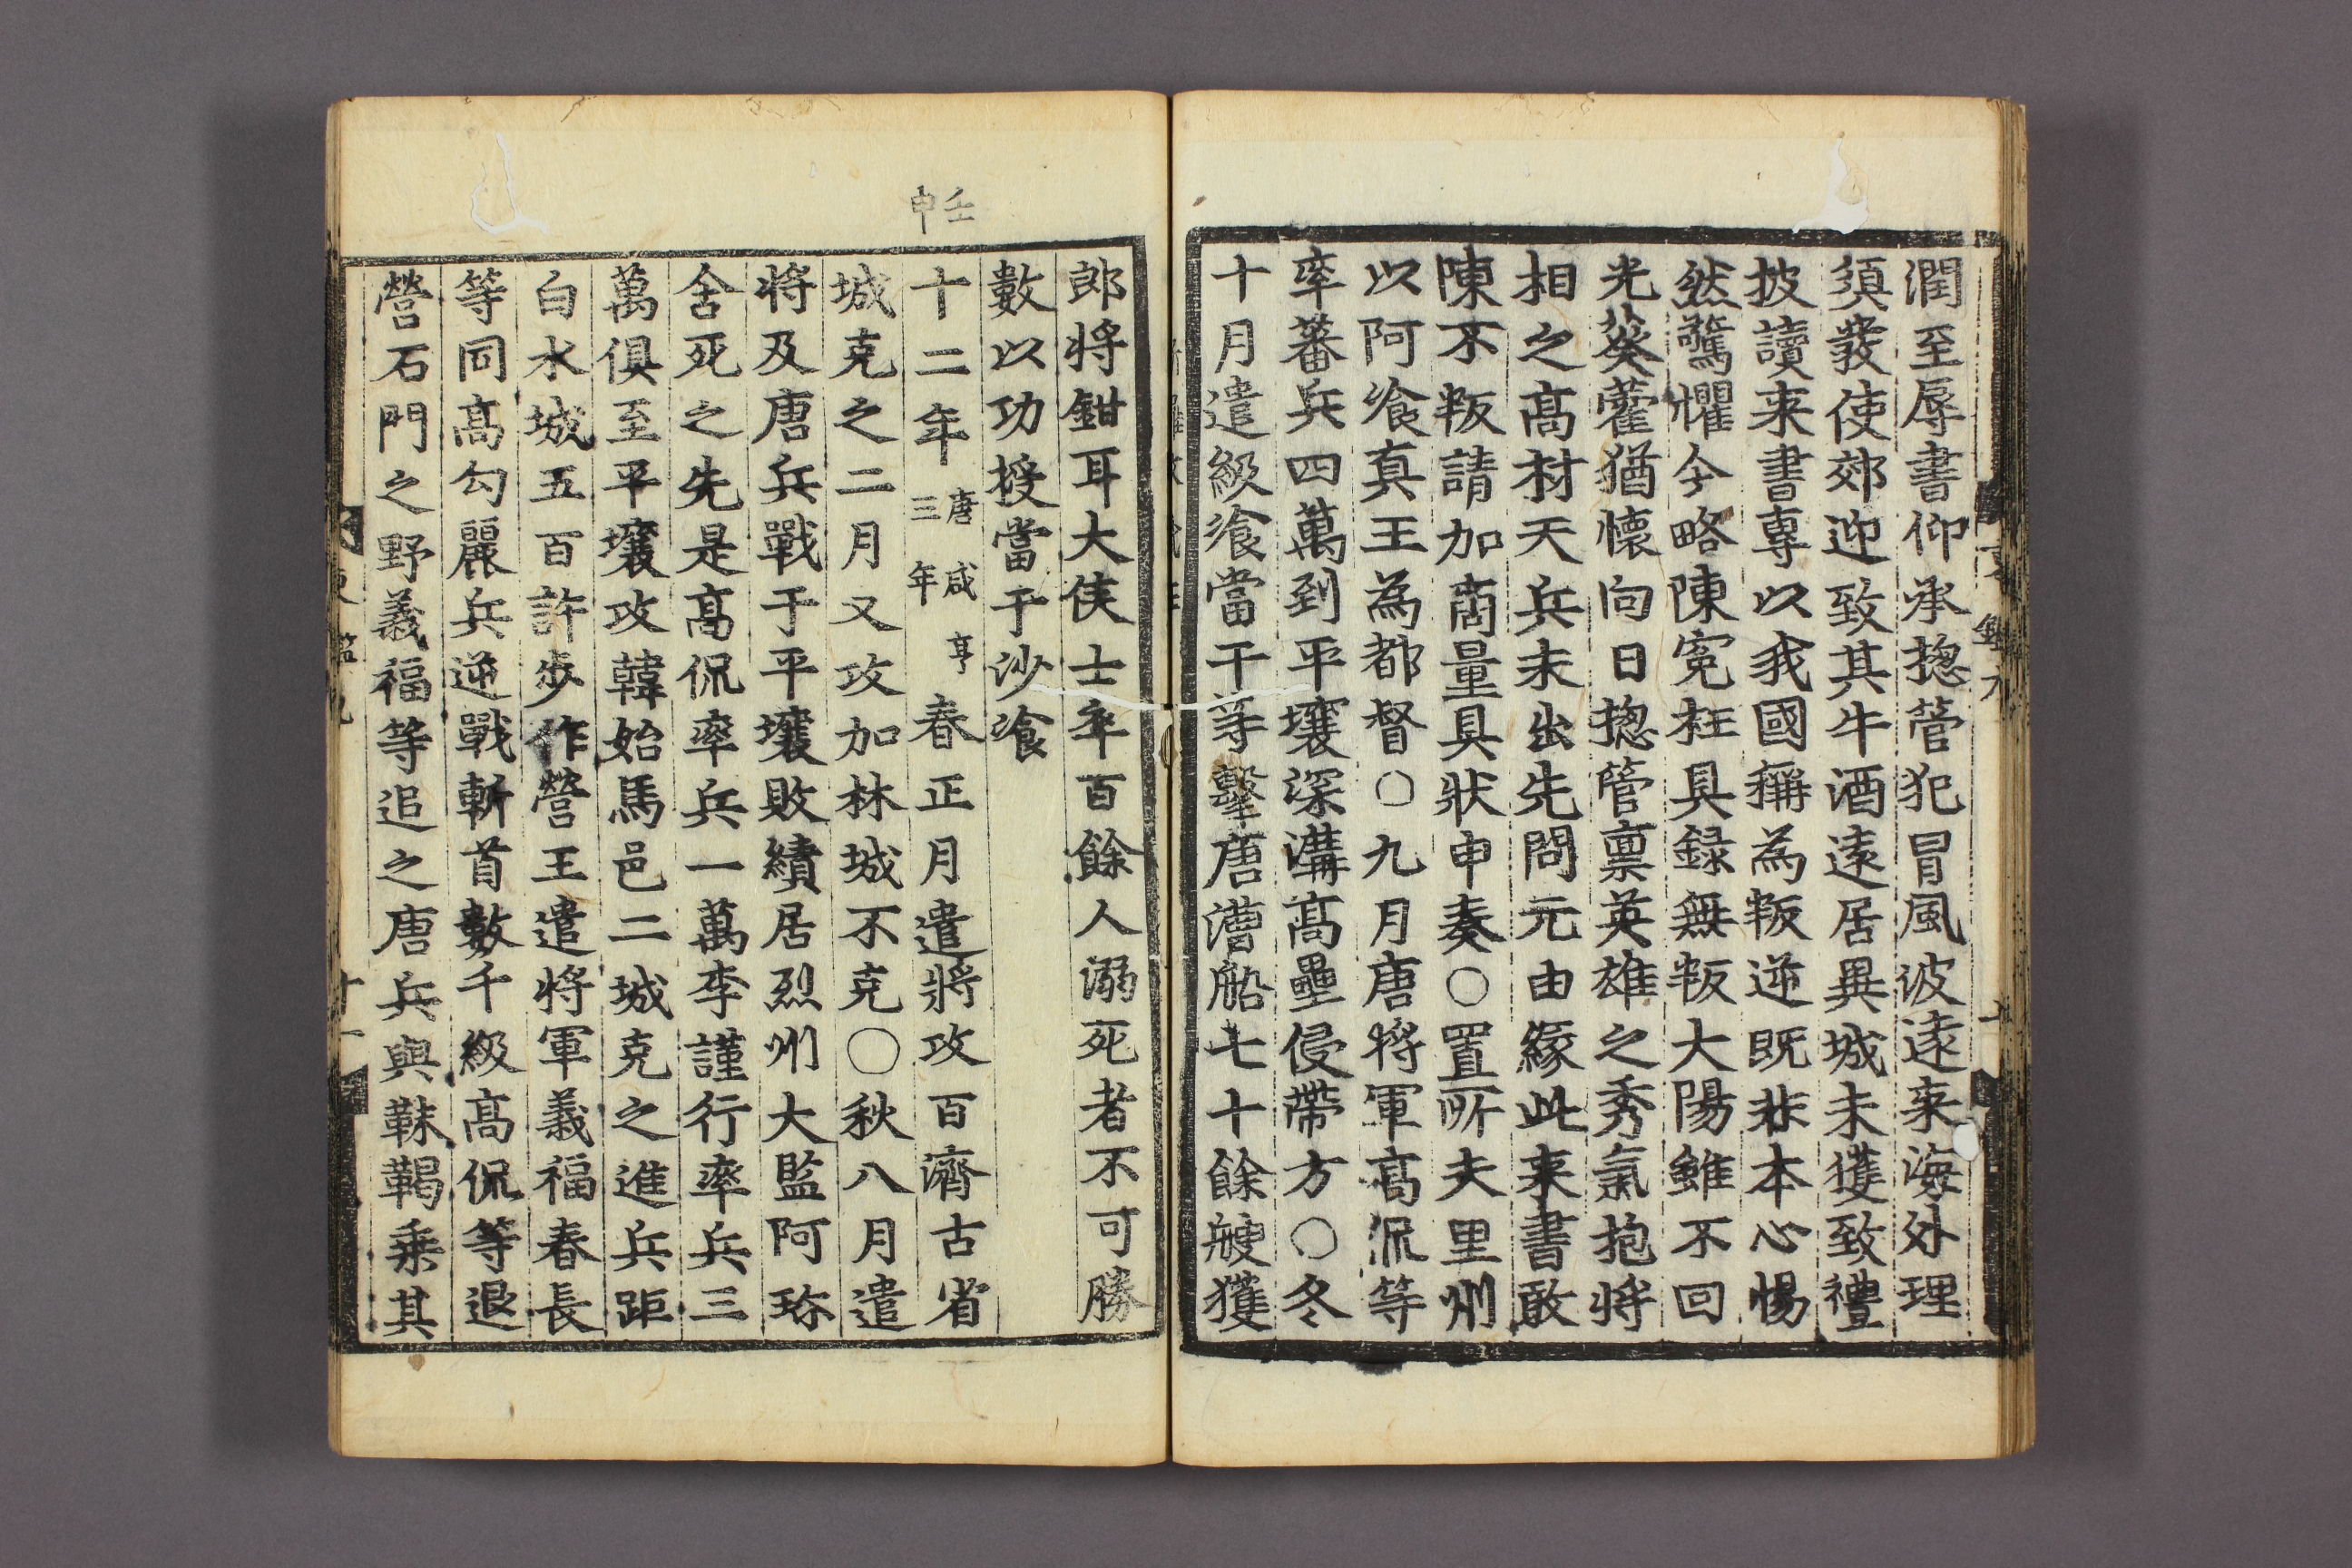 潤至辱書仰承揔管犯冒風波遠来海外理
須發使郊迎致其牛酒遠居異城未獲致禮
披讀来書專以我國稱為叛逆既非本心惕
然驚懼今略陳寃枉具録無叛大陽雖不回
光葵藿猶懷向日揔管禀英雄之秀氣抱將
相之高材天兵未出先問元由緣此来書敢
陳不叛請加商量具狀申奏○置所夫里州
以阿飡真王為都督○九月唐將軍高侃等
率蕃兵四萬到平壤深溝高壘侵帶方○冬
十月遣級飡當千等擊唐漕船七十餘艘獲
郎將鉗耳大侯士卒百餘人溺死者不可勝
數以功授當千沙飡
壬申
十二年 唐咸亨三年 春正月遣將攻百濟古省
城克之二月又攻加林城不克○秋八月遣
將及唐兵戰于平壤敗績居烈州大監阿珎
含死之先是高侃率兵一萬李謹行率兵三
萬俱至平壤攻韓始馬邑二城克之進兵距
白水城五百許步作營王遣將軍義福春長
等同高勾麗兵逆戰斬首數千級高侃等退
營石門之野義福等追之唐兵與靺鞨乗其
十一